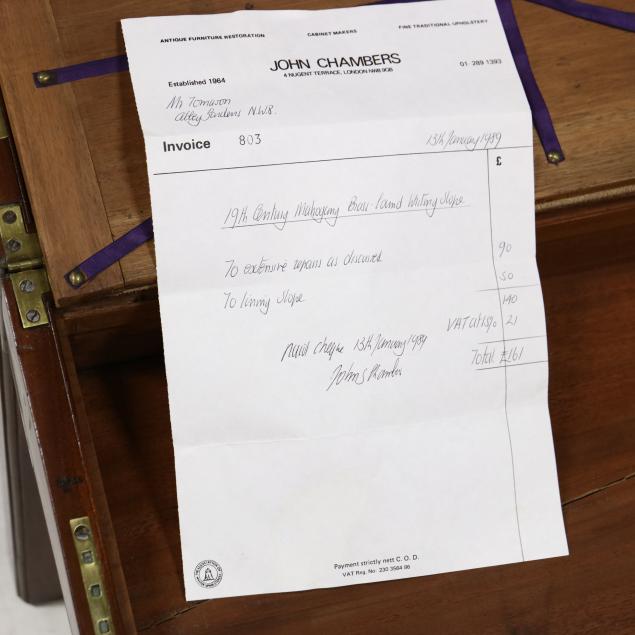 ANTIQUE FURNITURE RESTORATION CABINET MAKERS FINE TRADITIONAL UPHOLSTERY
JOHN CHAMBERS
4 NUGENT TERRACE, LONDON NW8 9QB
Established 1964 01 289 1393
Mr Tomason
Abbey Gardens N.W.8.
Invoice 803 13th January 1989
£
19th Century Mahogany Brass bound Writing Slope
To extensive repairs as discussed 90
To lining slope 50
140
VAT at 15% 21
Total £161
paid cheque 13th January 1989
John Chambers
Payment strictly nett C.O.D.
VAT Reg. No: 230 3564 86